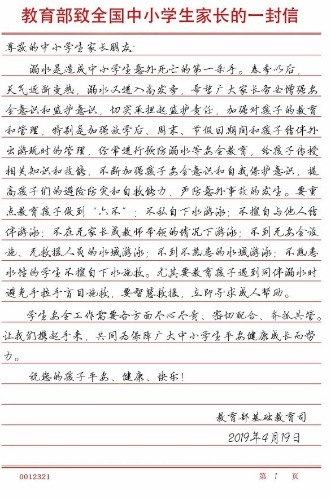 教育部致全国中小学生家长的一封信
尊敬的中小学生家长朋友:
溺水是造成中小学生意外死亡的第一杀手。春季以后,
天气渐变热,溺水又进入高发季,希望广大家长务必增强安
全意识和监护意识,切实承担起监护责任,加强对孩子的教育
和管理,特别是加强放学后、周末、节假日期间和孩子结伴外
出游玩时的管理,经常进行预防溺水等安全教育,给孩子传授
相关知识和技能,不断加强孩子安全意识和自我保护意识,提
高孩子们的避险防灾和自救能力,严防意外事故的发生。要重
点教育孩子做到“六不”:不私自下水游泳;不擅自与他人结
伴游泳;不在无家长或教师带领的情况下游泳;不到无安全设
施、无救援人员的水域游泳;不到不熟悉的水域游泳;不熟悉
水性的学生不擅自下水施救。尤其要教育孩子遇到同伴溺水时
避免手拉手盲目施救,要智慧救援,立即寻求成人帮助。
学生安全工作需要各方面尽心尽责、密切配合、齐抓共管。
让我们携起手来,共同为保障广大中小学生平安健康成长而努
力。
祝您的孩子平安、健康、快乐!
教育部基础教育司
2019年4月19日
0012321 第 1 页